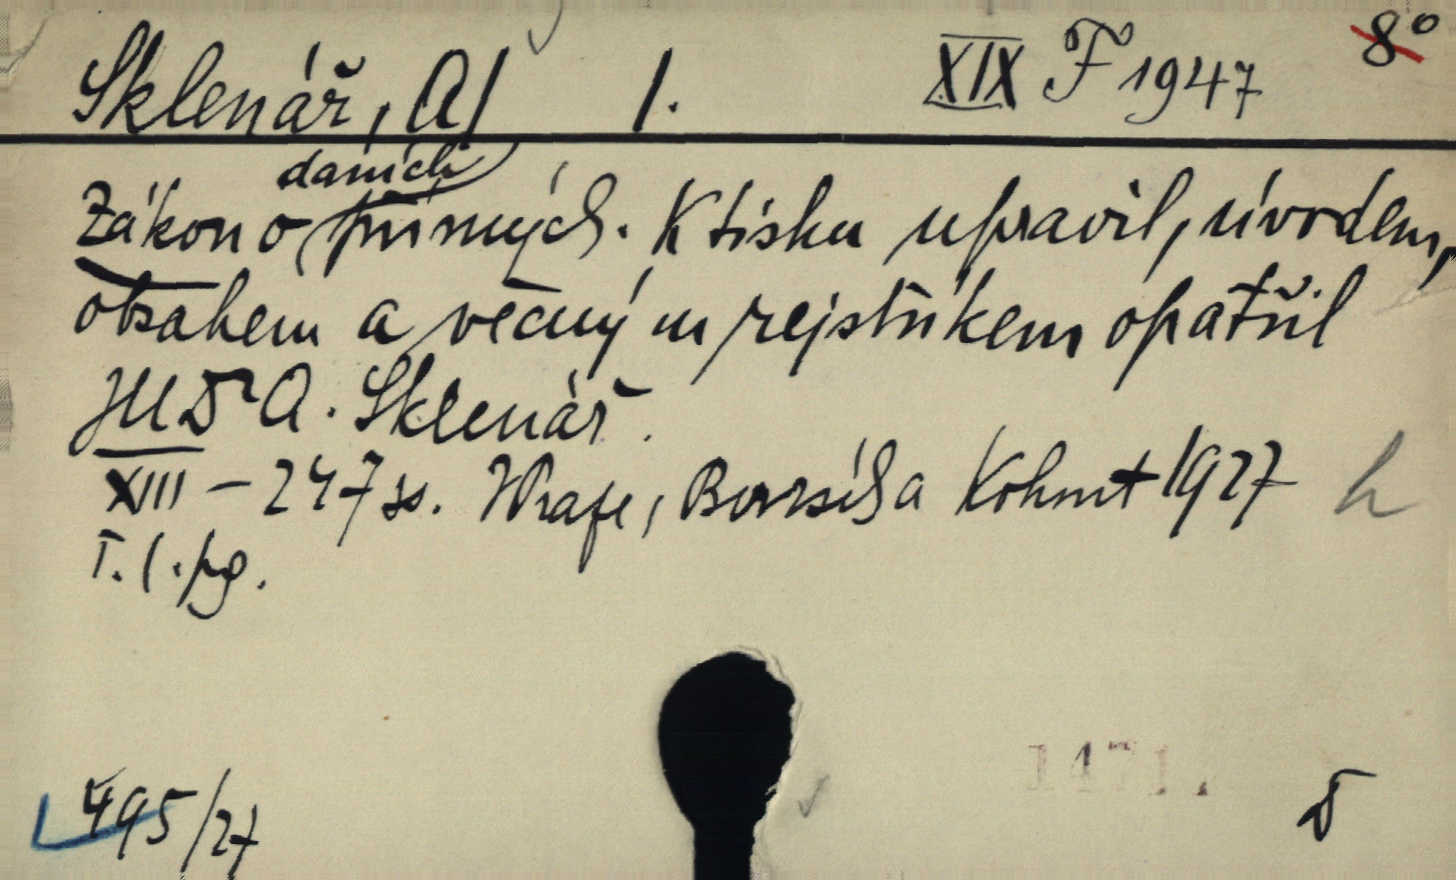 Sklenář, A/ 1. XIX F 1947 8°
daních
Zákon o přímých. K tisku upravil, úvodem,
obsahem a věcným rejstříkem opatřil
JUDr A. Sklenář.
XIII – 247 ss. Praze, Borsíka Kohout 1927 h
T. l. pg.
1471.
495/27